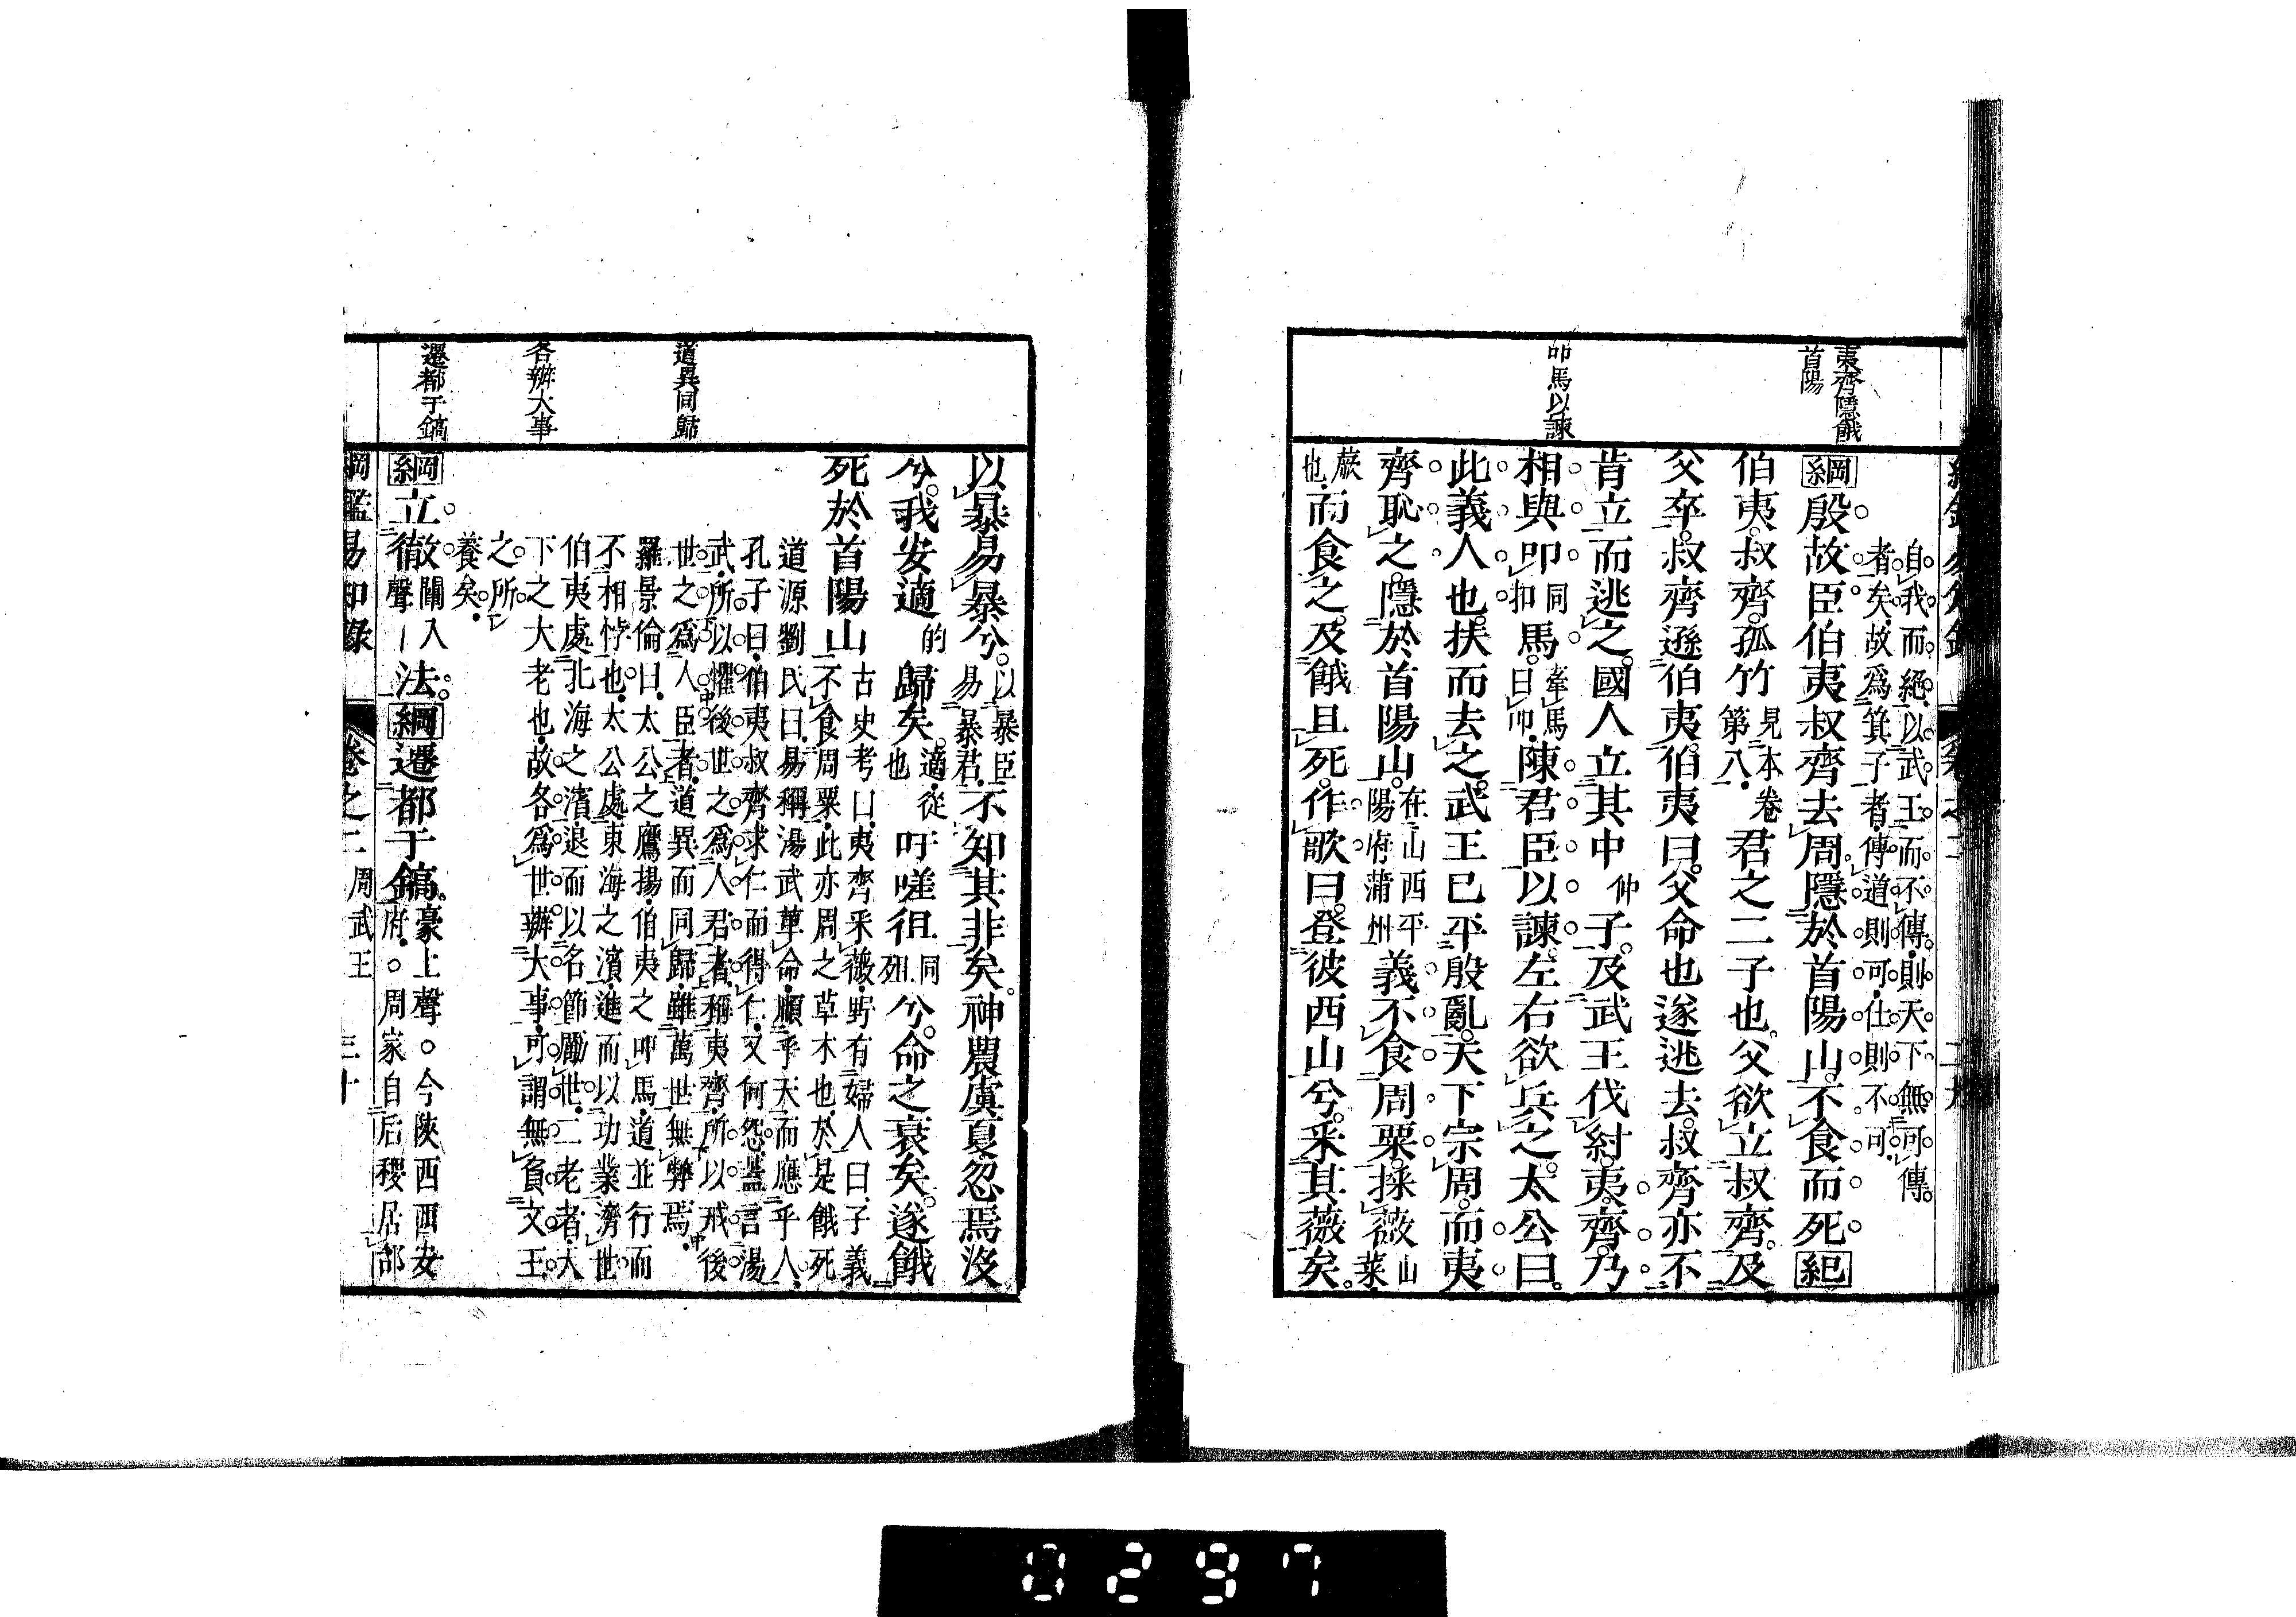 夷齊隱餓
首陽
叩馬以諫
自我而絕以武王而不傳則天下無可傳
者矣故爲箕子者傳道則可仕則不可
綱殷故臣伯夷叔齊去周隱於首陽山不食而死紀
伯夷叔齊孤竹見本卷第八君之二子也父欲立叔齊及
父卒叔齊遜伯夷伯夷曰父命也遂逃去叔齊亦不
肯立而逃之國人立其中仲子及武王伐紂夷齊乃
相與叩同扣馬牽馬曰叩陳君臣以諫左右欲兵之太公曰
此義人也扶而去之武王已平殷亂天下宗周而夷
齊恥之隱於首陽山在山西平陽府蒲州義不食周粟採薇山菜
蕨也而食之及餓且死作歌曰登彼西山兮采其薇矣
道異同歸
各辦大事
遷都于鎬
以暴易暴兮以暴臣易暴君不知其非矣神農虞夏忽焉沒
兮我安適的歸矣適從也吁嗟徂同殂兮命之衰矣遂餓
死於首陽山古史考曰夷齊采薇野有婦人曰子義
不食周粟此亦周之草木也於是餓死
道源劉氏曰易稱湯武革命順乎天而應乎人
孔子曰伯夷叔齊求仁而得仁又何怨蓋言湯
武所以懼後世之爲人君者稱夷齊所以戒後
世之爲人臣者道異而同歸雖萬世無弊焉
羅景倫曰太公之鷹揚伯夷之叩馬道並行而
不相悖也太公處東海之濱進而以功業濟世
伯夷處北海之濱退而以名節勵世二老者天
下之大老也故各爲世辦大事可謂無負文王
之所
養矣
綱立徹關入聲法綱遷都于鎬豪上聲○今陝西西安
府○周家自后稷居邰
綱鑑易知錄 卷之二 周武王 三十